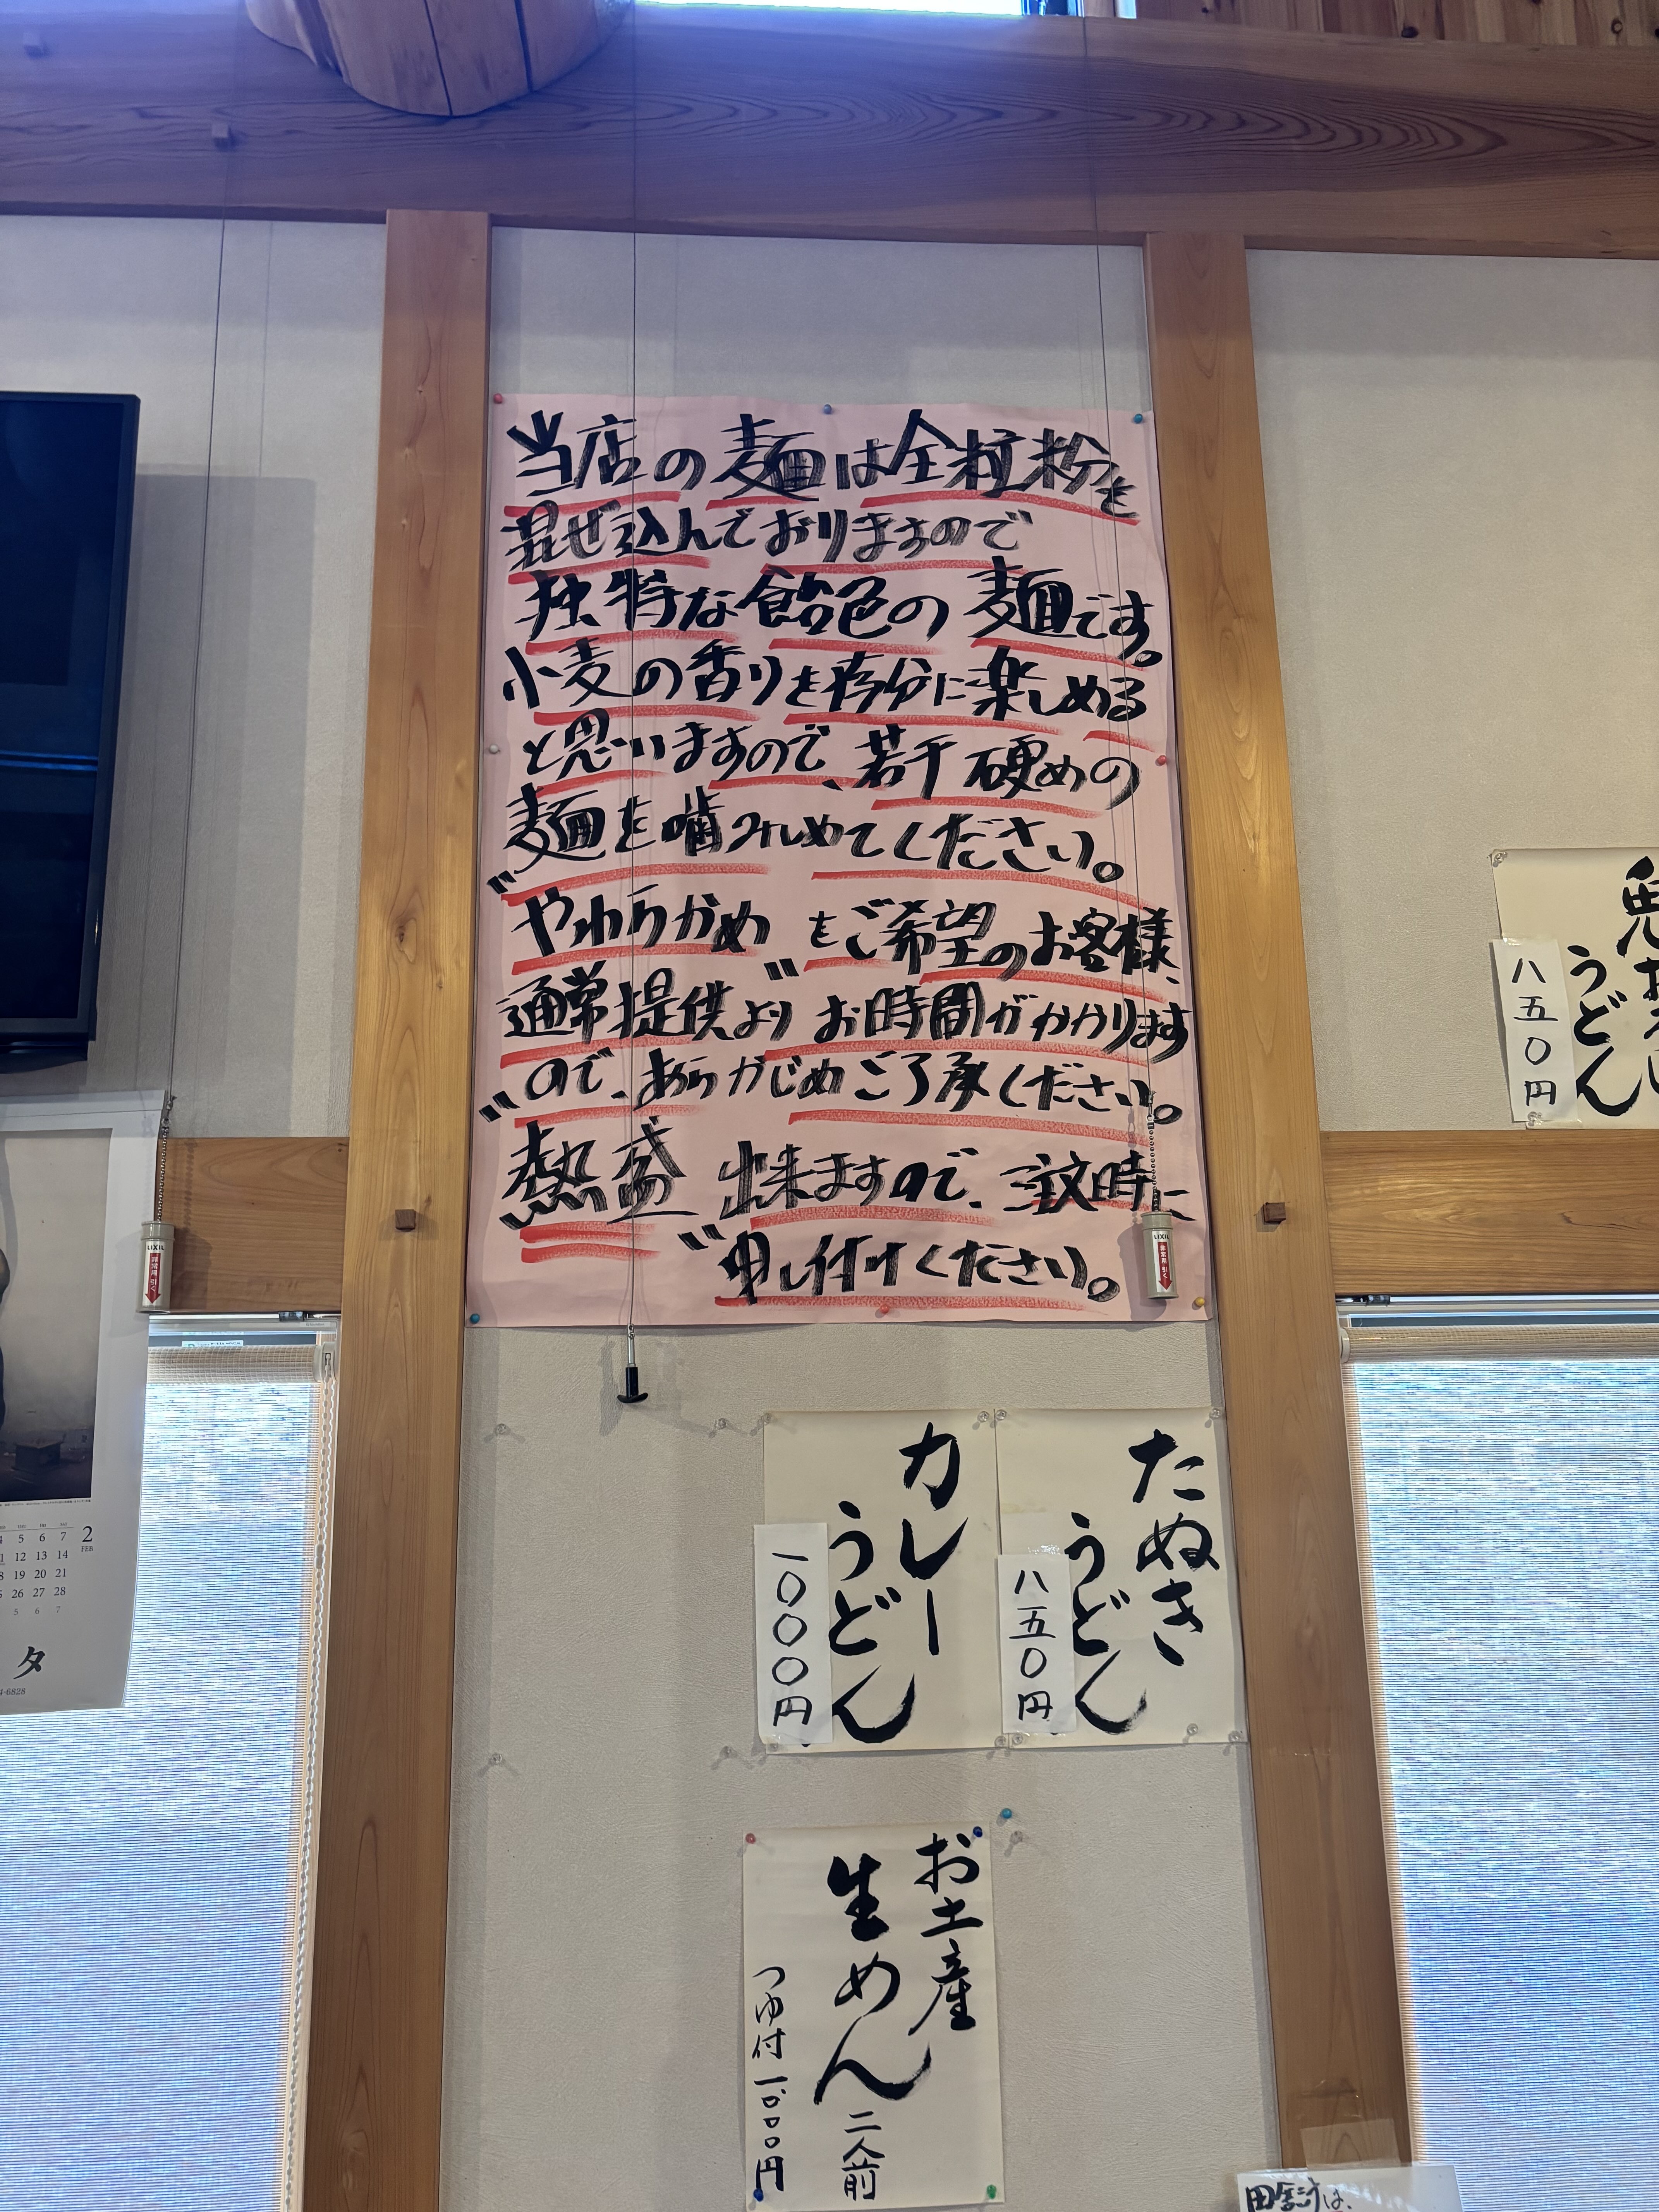 当店の麺は全粒粉を
混ぜ込んでおりますので
独特な飴色の麺です。
小麦の香りを存分に楽しめる
と思いますので、若干硬めの
麺を噛みしめてください。
"やわらかめ"をご希望のお客様、
通常提供よりお時間がかかります
ので、あらかじめご了承ください。
"熱盛"出来ますので、ご注文時に
申し付けください。
うどん
八五〇円
たぬき
うどん
八五〇円
カレー
うどん
一〇〇〇円
お土産
生めん 二人前
つゆ付 一、〇〇〇円
LIXIL
非常用 引く
LIXIL
非常用 引く
2
FEB
5 6 7
12 13 14
19 20 21
26 27 28
5 6 7
タ
-6828